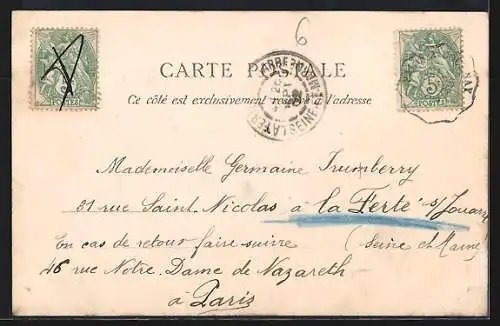 6
CARTE POSTALE
Ce côté est exclusivement réservé à l'adresse
Mademoiselle Germaine Trumberry
31 rue Saint Nicolas à la Ferté s/Jouarre
En cas de retour faire suivre (Seine et Marne)
46 rue Notre. Dame de Nazareth
à Paris